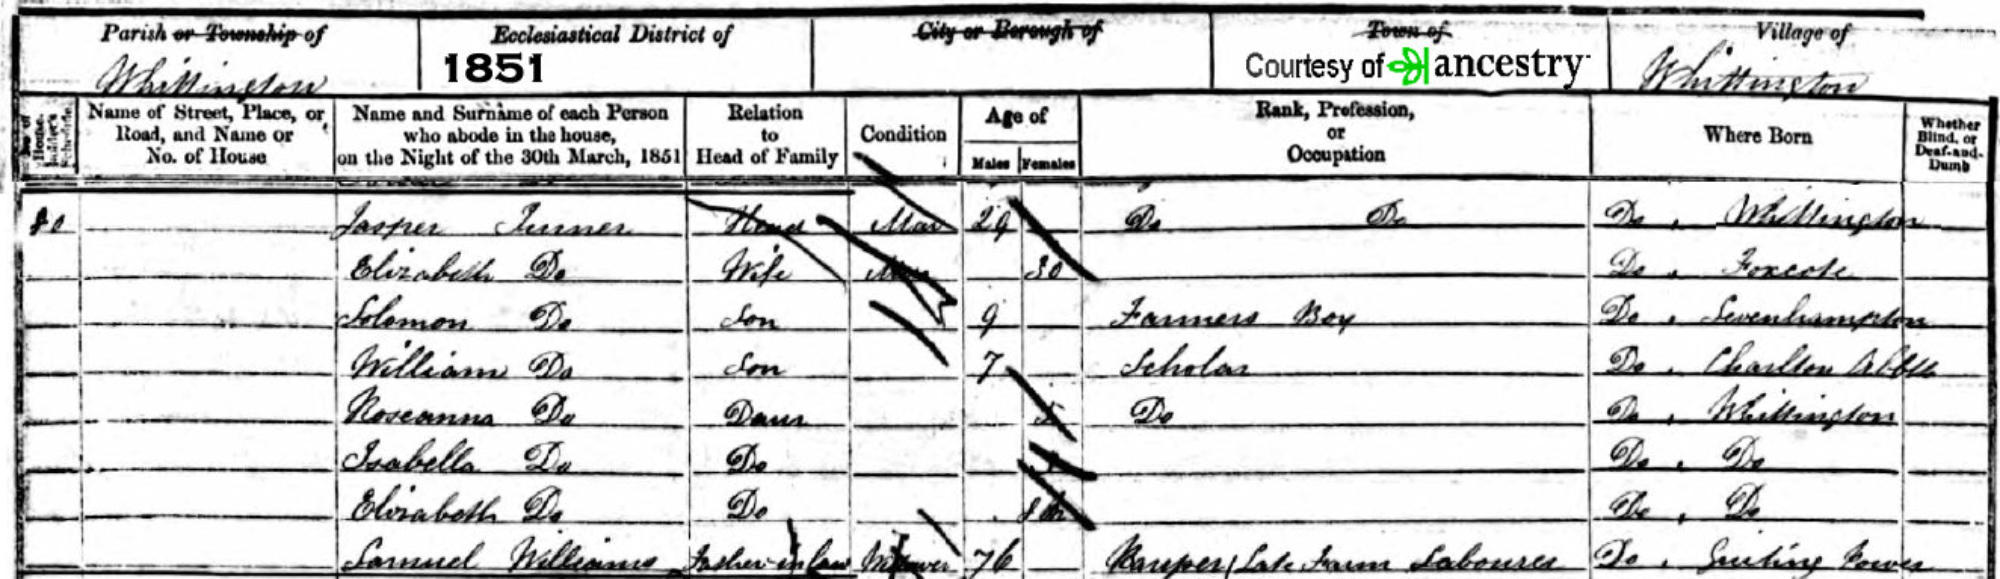 Parish or Township of Ecclesiastical District of City or Borough of Town of Village of
Whittington 1851 Courtesy of ancestry Whittington
Name of Street, Place, or Road, and Name or No. of House
Name and Surname of each Person who abode in the house, on the Night of the 30th March, 1851
Relation to Head of Family
Condition
Age of
Males Females
Rank, Profession, or Occupation
Where Born
Whether Blind, or Deaf-and-Dumb
80 Jasper Turner Head Mar 29 Do Do Do Whittington
Elizabeth Do Wife Mar 30 Do Foxcote
Solomon Do Son 9 Farmers Boy Do Sevenhampton
William Do Son 7 Scholar Do Charlton Abbts
Roseanna Do Daur Do Do Whittington
Isabella Do Do Do Do
Elizabeth Do Do Do Do
Samuel Williams Father in law Widower 76 Pauper/Late Farm Labourer Do Guiting Power